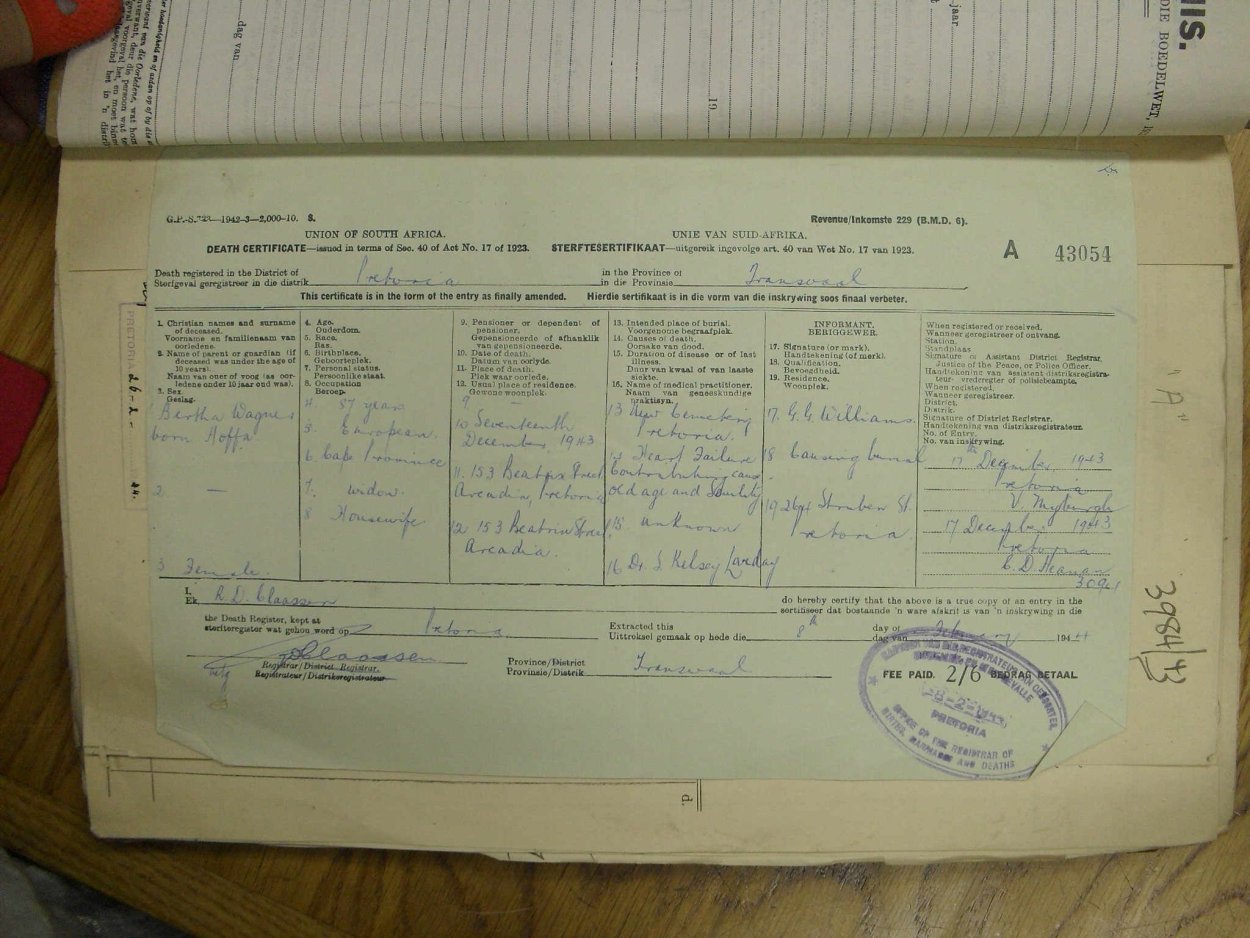 DIE BOEDELWET,
IIS.
jaar
dag van
19
G.P.-S. 1942-3—2,000-10. S.
Revenue/Inkomste 229 (B.M.D. 6).
UNION OF SOUTH AFRICA.
UNIE VAN SUID-AFRIKA.
DEATH CERTIFICATE—issued in terms of Sec. 40 of Act No. 17 of 1923.
STERFTESERTIFIKAAT—uitgereik ingevolge art. 40 van Wet No. 17 van 1923.
A 43054
Death registered in the District of
Sterfgeval geregistreer in die distrik Pretoria
in the Province of
in die Provinsie Transvaal
This certificate is in the form of the entry as finally amended. Hierdie sertifikaat is in die vorm van die inskrywing soos finaal verbeter.
1. Christian names and surname
of deceased.
Voorname en familienaam van
oorledene.
2. Name of parent or guardian (if
deceased was under the age of
10 years).
Naam van ouer of voog (as oor-
ledene onder 10 jaar oud was).
3. Sex.
Geslag.
1 Bertha Wagner
born Hoffa
2 —
3 Female.
4. Age.
Ouderdom.
5. Race.
Ras.
6. Birthplace.
Geboorteplek.
7. Personal status.
Persoonlike staat.
8. Occupation
Beroep.
4 87 years
5. European.
6 Cape Province
7. widow.
8 Housewife
9. Pensioner or dependent of
pensioner.
Gepensioeneerde of afhanklik
van gepensioeneerde.
10. Date of death.
Datum van oorlyde.
11. Place of death.
Plek waar oorlede.
12. Usual place of residence.
Gewone woonplek.
9 —
10 Seventeenth
December, 1943
11. 153 Beatrix Street
Arcadia, Pretoria
12 153 Beatrix Street,
Arcadia.
13. Intended place of burial.
Voorgenome begraafplek.
14. Causes of death.
Oorsake van dood.
15. Duration of disease or of last
illness.
Duur van kwaal of van laaste
siekte.
16. Name of medical practitioner.
Naam van geneeskundige
praktisyn.
13 New Cemetery
Pretoria.
14 Heart Failure
Contributing cause
old age and Senility
15 unknown
16 Dr. S. Kelsey Loveday
INFORMANT.
BERIGGEWER.
17. Signature (or mark).
Handtekening (of merk).
18. Qualification.
Bevoegdheid.
19. Residence.
Woonplek.
17. G.G. Williams.
18 Causing burial
19 Struben St.
Pretoria.
When registered or received.
Wanneer geregistreer of ontvang.
Station.
Standplaas
Signature of Assistant District Registrar,
Justice of the Peace, or Police Officer.
Handtekening van assistent distriksregistra-
teur- vrederegter of polisiebeampte.
When registered.
Wanneer geregistreer.
District.
Distrik.
Signature of District Registrar.
Handtekening van distriksregistrateur.
No. of Entry.
No. van inskrywing.
17th December, 1943
Pretoria
V. Myburgh
17 December 1943
Pretoria
C.D. Heaman
I,
Ek, R. D. Claassen
do hereby certify that the above is a true copy of an entry in the
sertifiseer dat bostaande 'n ware afskrif is van 'n inskrywing in die
the Death Register, kept at
sterfteregister wat gehou word op Pretoria
Extracted this
Uittreksel gemaak op hede die 8th
day of
dag van February 1944
Claassen
Registrar/District Registrar.
Registrateur/Distriksregistrateur
Province/District
Provinsie/Distrik Transvaal
FEE PAID. 2/6 BEDRAG BETAAL.
PRETORIA
OFFICE OF THE REGISTRAR OF
BIRTHS, MARRIAGES AND DEATHS
"A"
3984/43
d.